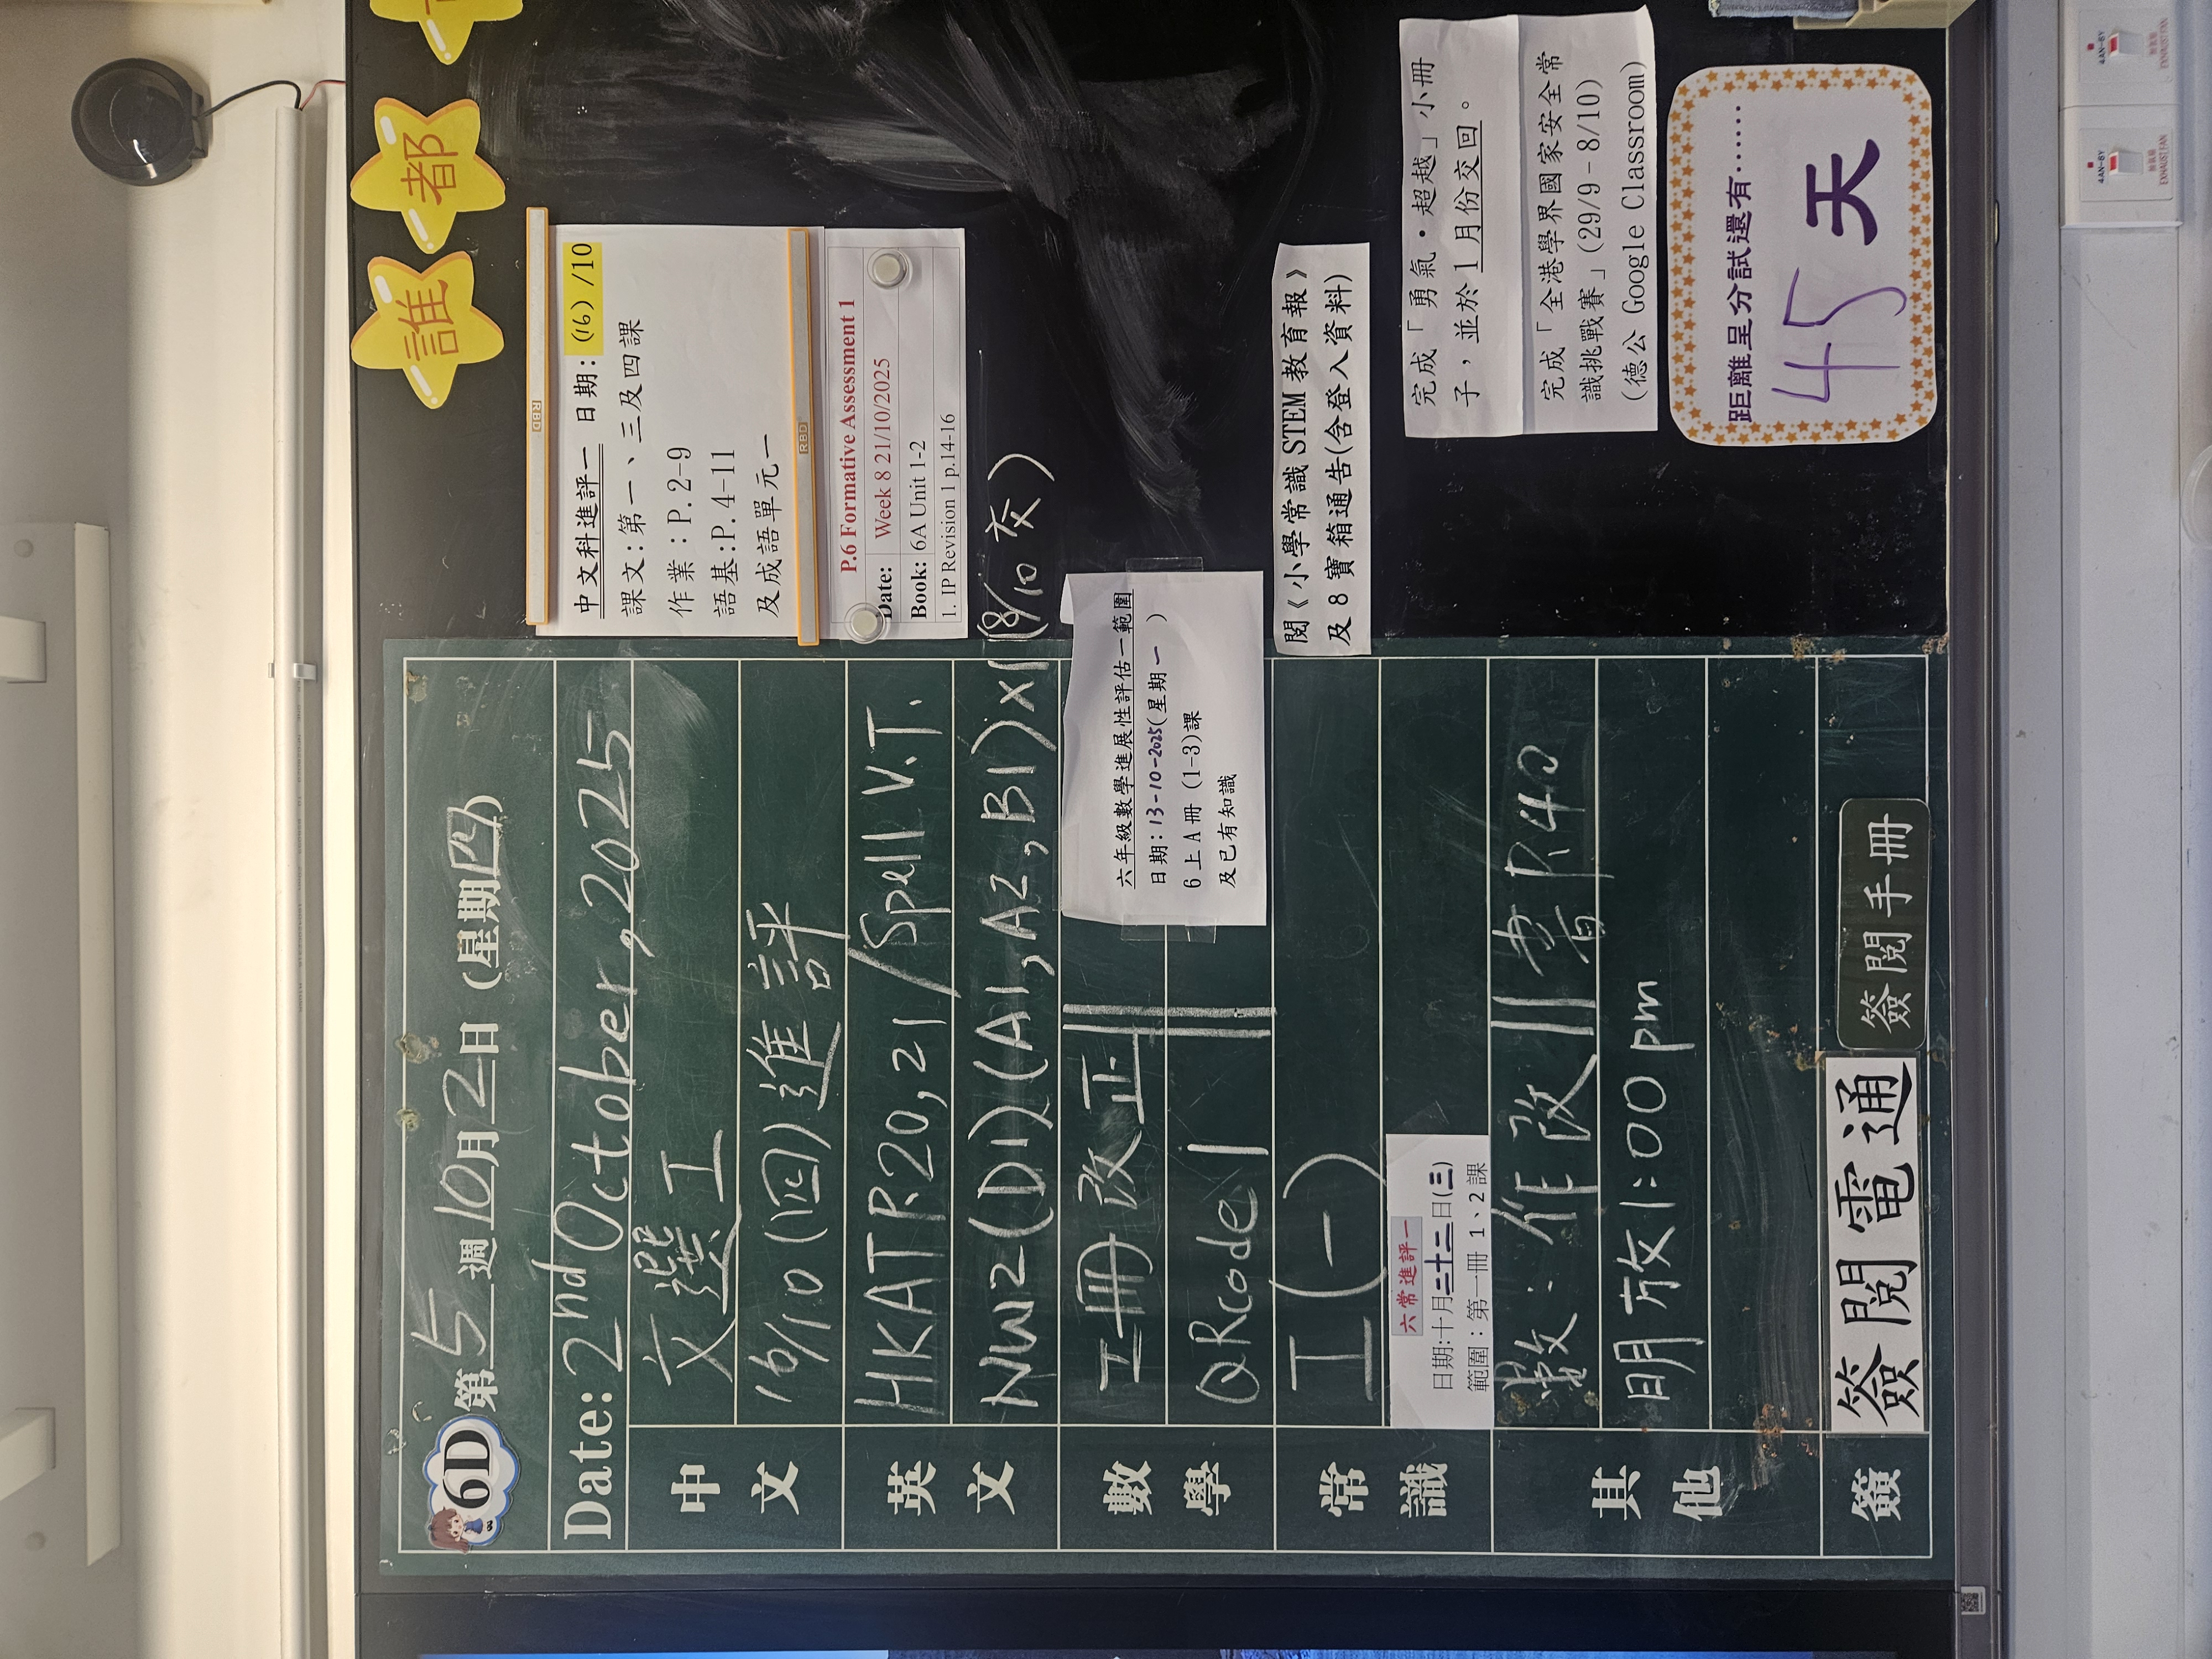 誰都
6D 第5週10月2日(星期四)
Date: 2nd October, 2025
中文
文選工
16/10(四)進評
英文
HKATP.20,21/Spell V.T.
NW2(D1)(A1,A2,B1)x1(8/10交)
數學
工冊改正
QRcode 1
常識
工(一)
六常進評一
日期:十月二十二日(三)
範圍：第一冊 1、2課
其他
數：作改 書P.40
明放1:00pm
簽
簽閱電通
簽閱手冊
中文科進評一 日期:(16)/10
課文:第一、三及四課
作業：P.2-9
語基:P.4-11
及成語單元一
P.6 Formative Assessment 1
Date: Week 8 21/10/2025
Book: 6A Unit 1-2
1. IP Revision 1 p.14-16
六年級數學進展性評估一範圍
日期：13-10-2025(星期一)
6上A冊 (1-3)課
及已有知識
閱《小學常識STEM教育報》
及8寶箱通告(含登入資料)
完成「勇氣・超越」小冊
子，並於1月份交回。
完成「全港學界國家安全常
識挑戰賽」(29/9-8/10)
(德公 Google Classroom)
距離呈分試還有......
45天
RBD
RBD
4AN-BY
EXHAUST FAN
4AN-BY
EXHAUST FAN